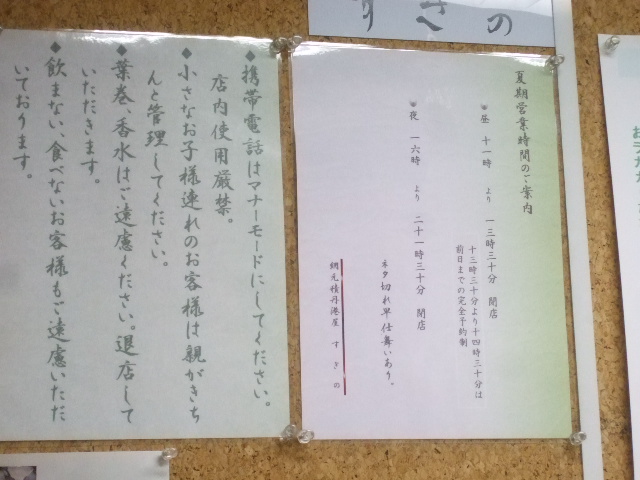 すぎの
夏期営業時間のご案内
昼 十一時 より 一三時三十分 閉店
十三時三十分より十四時三十分は
前日までの完全予約制
夜 一六時 より 二十一時三十分 閉店
ネタ切れ早仕舞いあり。
網元積丹港屋 すぎの
◆携帯電話はマナーモードにしてください。
店内使用厳禁。
◆小さなお子様連れのお客様は親がきち
んと管理してください。
◆葉巻、香水はご遠慮ください。退店して
いただきます。
◆飲まない、食べないお客様もご遠慮いただ
いております。